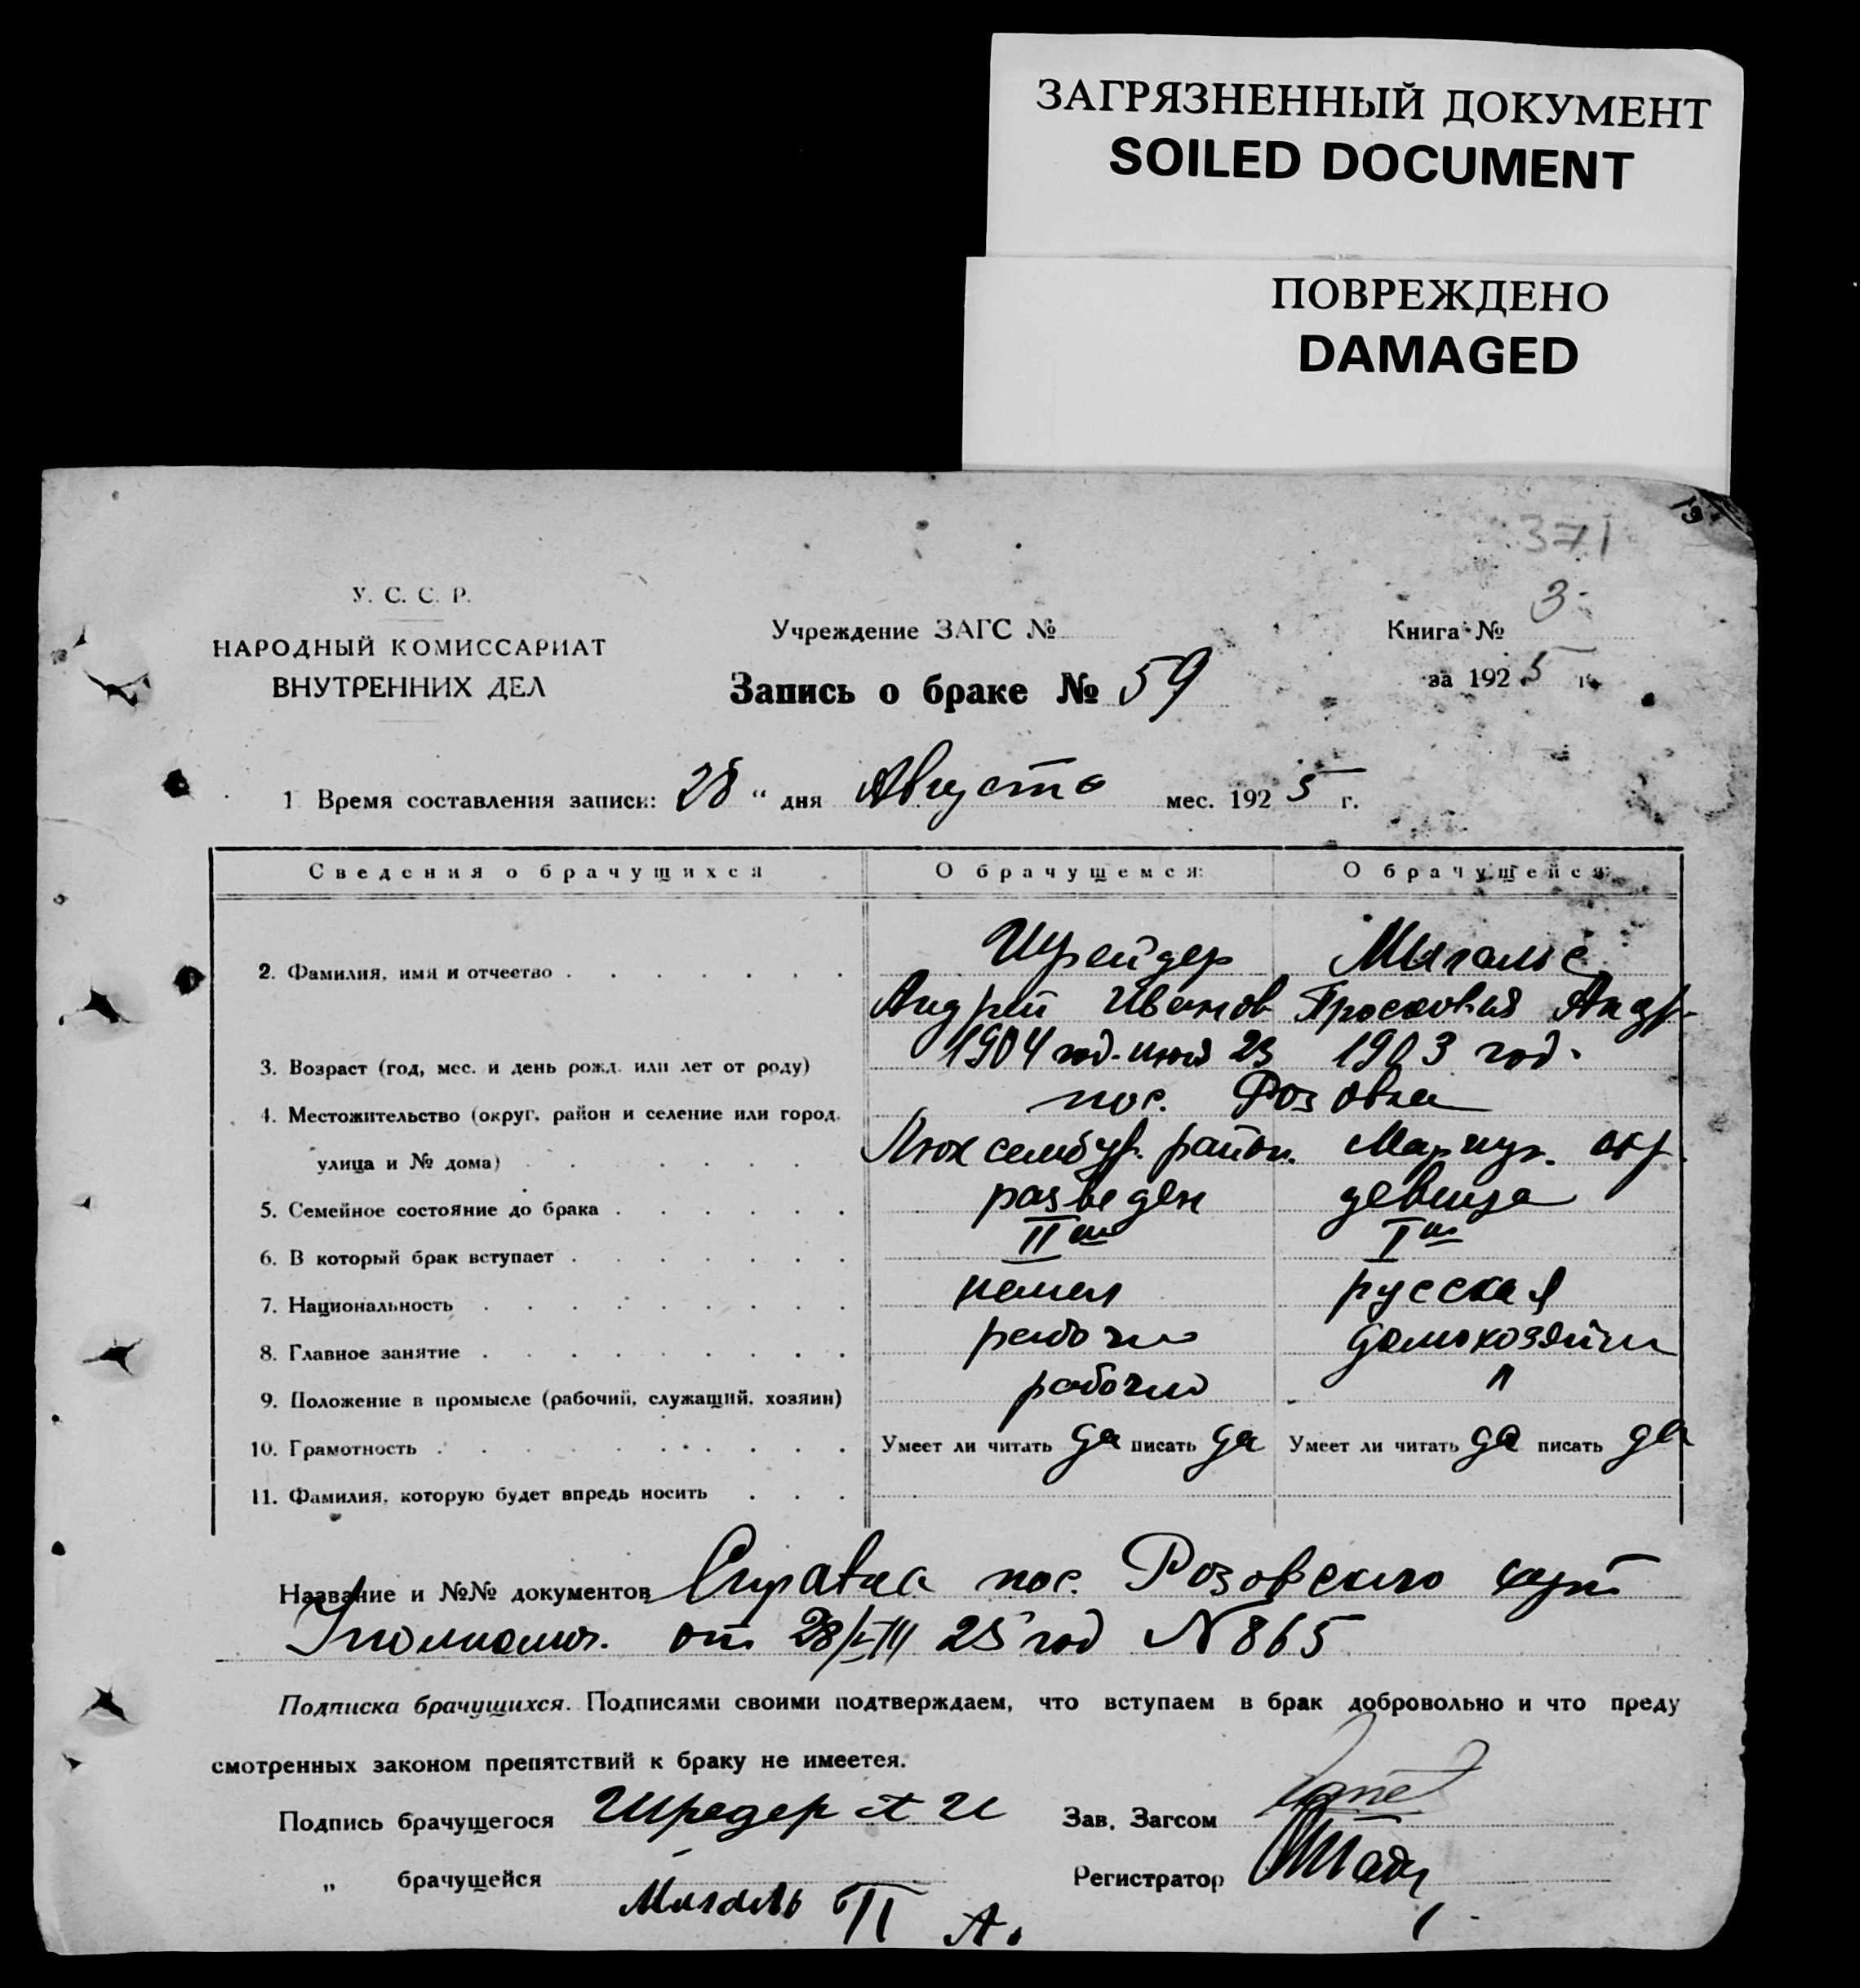 ЗАГРЯЗНЕННЫЙ ДОКУМЕНТ
SOILED DOCUMENT
ПОВРЕЖДЕНО
DAMAGED
371
У. С. С. Р.
НАРОДНЫЙ КОМИССАРИАТ
ВНУТРЕННИХ ДЕЛ
Учреждение ЗАГС №
Запись о браке № 59
Книга № 3
за 1925 г.
1 Время составления записи: 28 " дня Августа мес. 1925 г.
Сведения о брачущихся О брачущемся: О брачущейся:
2. Фамилия, имя и отчество Шрейдер
Андрей Иванов Просковия Андр
3. Возраст (год, мес. и день рожд. или лет от роду) 1904 год. июя 23 1903 год.
4. Местожительство (округ, район и селение или город, пос. Розовка
улица и № дома) Люксембур. район. Мариуп. окр.
5. Семейное состояние до брака разведен девица
6. В который брак вступает II ый I ый
7. Национальность немец русская
8. Главное занятие рабочий домохозяйки
9. Положение в промысле (рабочий, служащий, хозяин) рабочий "
10. Грамотность Умеет ли читать да писать да Умеет ли читать да писать да
11. Фамилия, которую будет впредь носить
Название и №№ документов Справка пос. Розовского
от 28/VIII 25 год N 865
Подписка брачущихся. Подписями своими подтверждаем, что вступаем в брак добровольно и что преду
смотренных законом препятствий к браку не имеется.
Подпись брачущегося Шредер А И Зав. Загсом
„ брачущейся Мигаль П А. Регистратор